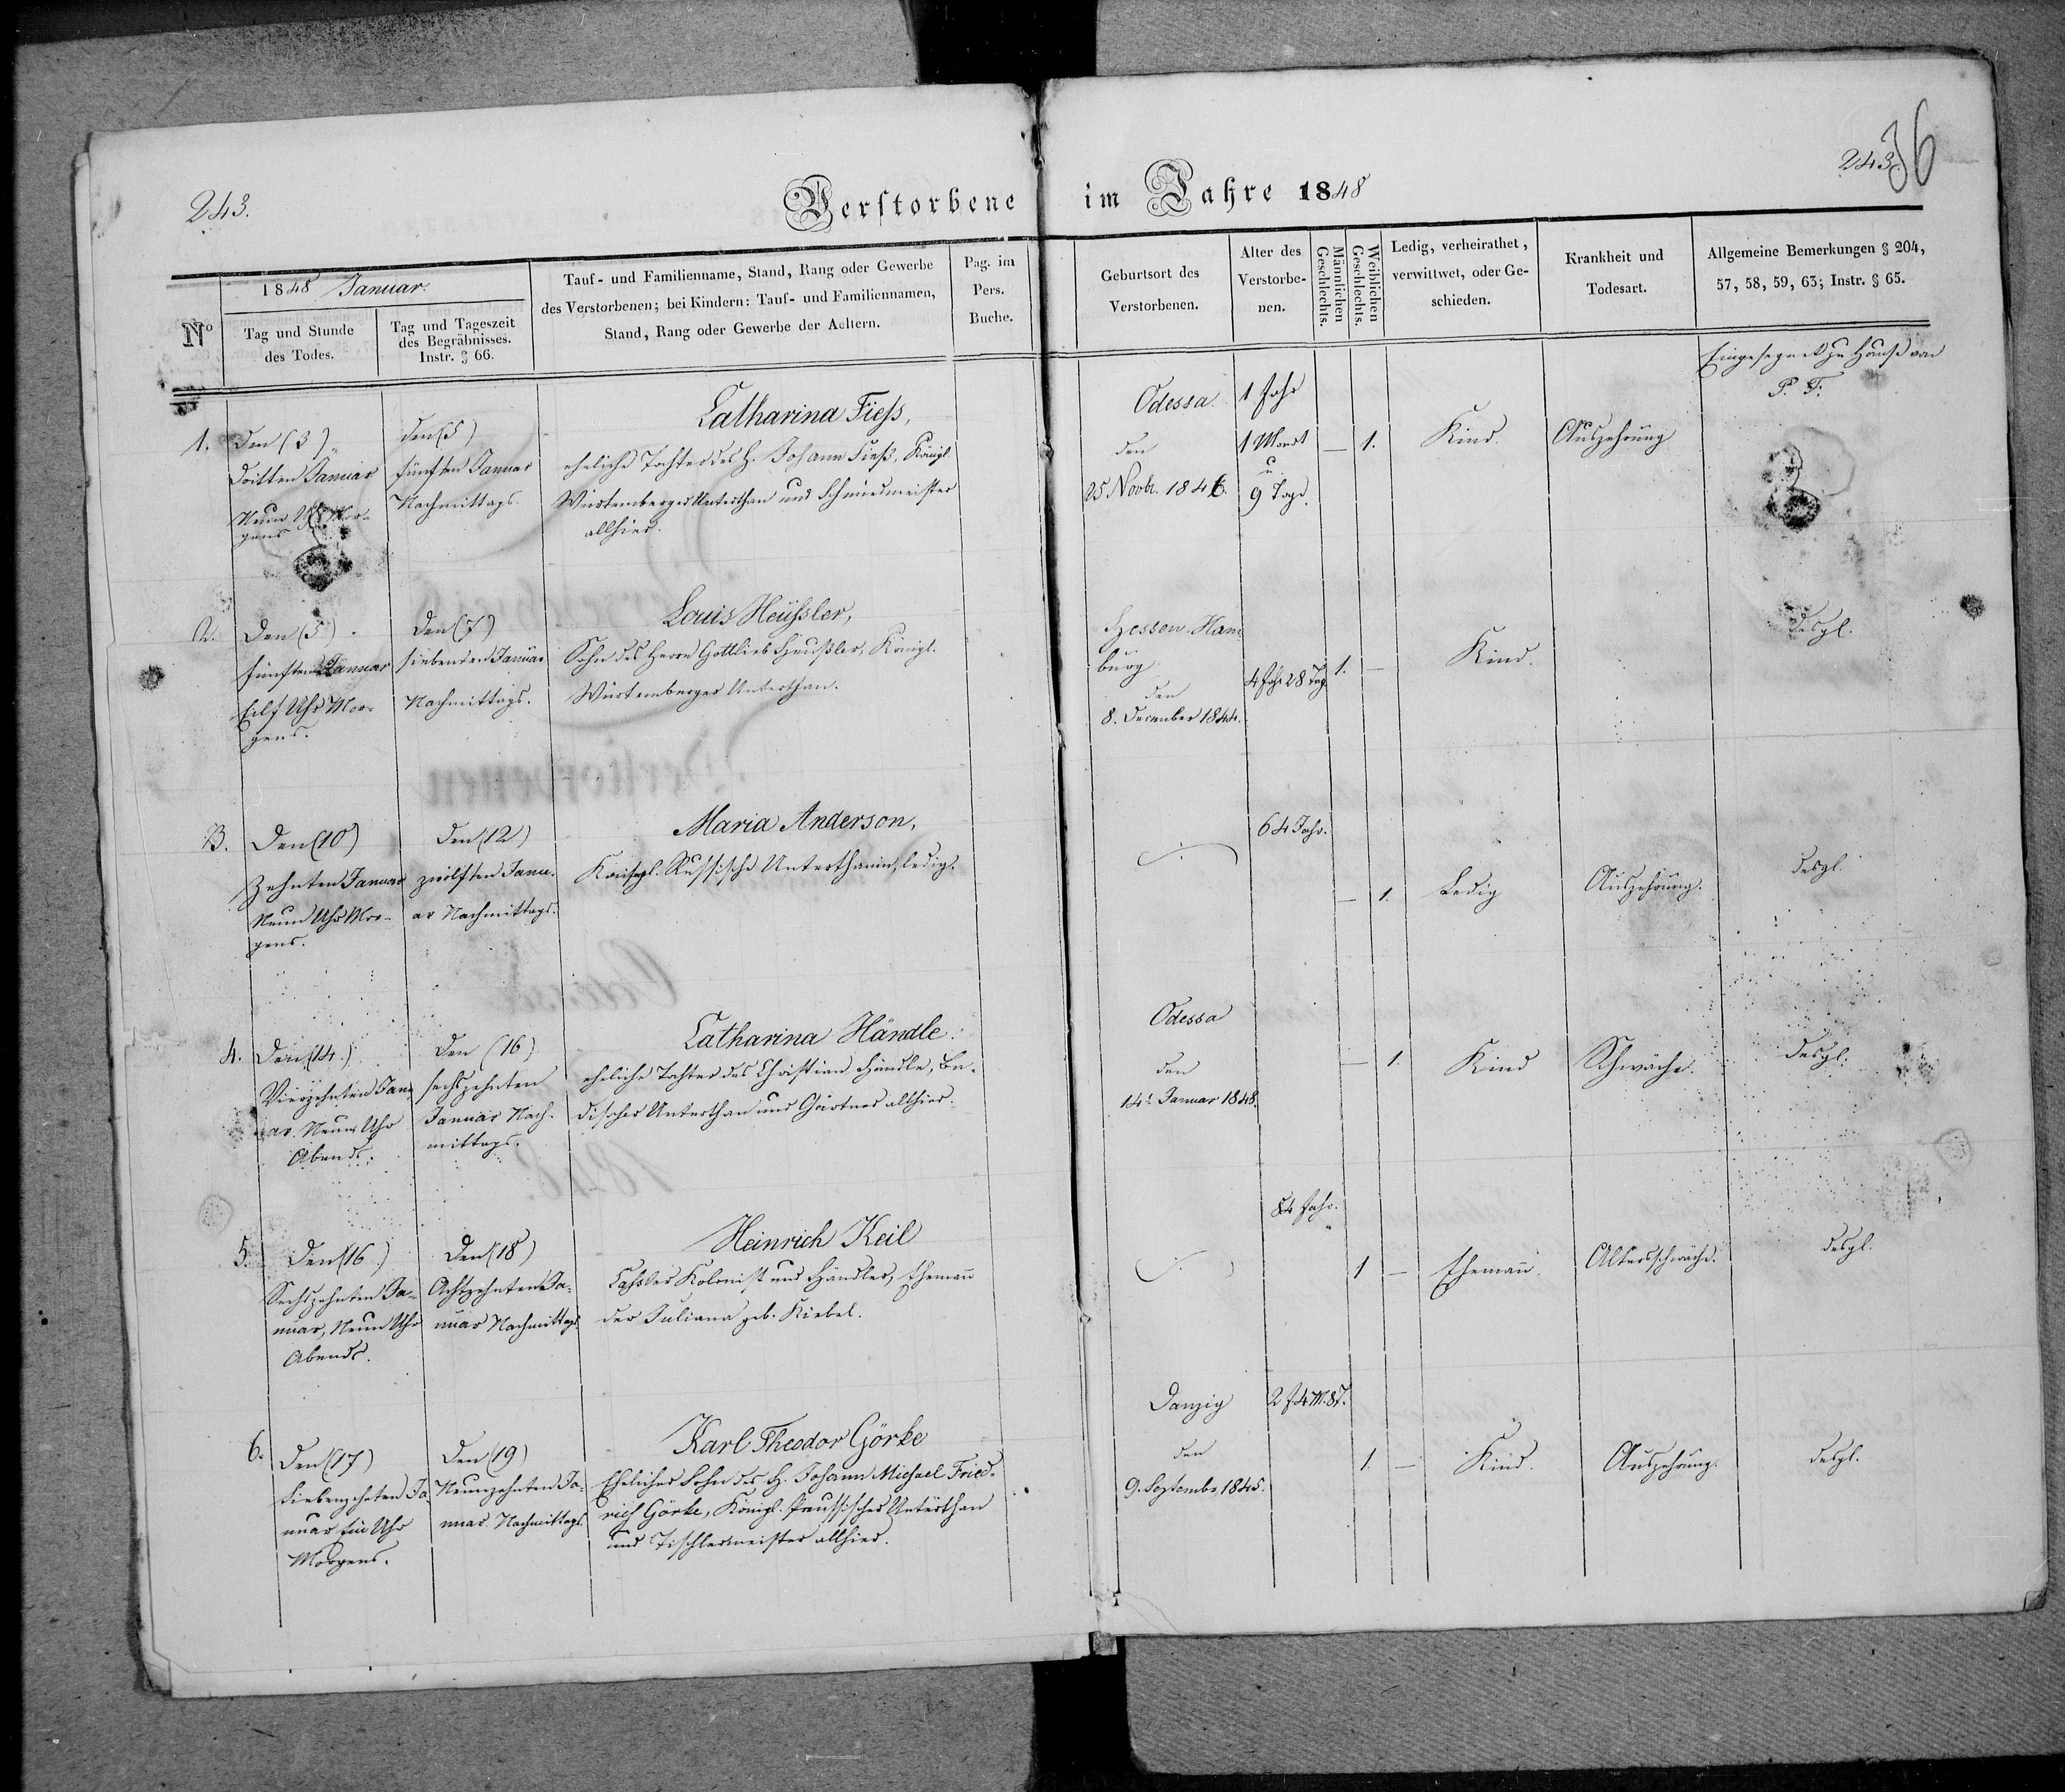 243.
Verstorbene im Jahre 1848
243.
36
1848 Januar.
No
Tag und Stunde
des Todes.
Tag und Tageszeit
des Begräbnisses.
Instr. § 66.
Tauf- und Familienname, Stand, Rang oder Gewerbe
des Verstorbenen; bei Kindern: Tauf- und Familiennamen,
Stand, Rang oder Gewerbe der Aeltern.
Pag. im
Pers.
Buche.
Geburtsort des
Verstorbenen.
Alter des
Verstorbe-
nen.
Männlichen
Geschlechts.
Weiblichen
Geschlechts.
Ledig, verheirathet,
verwittwet, oder Ge-
schieden.
Krankheit und
Todesart.
Allgemeine Bemerkungen § 204,
57, 58, 59, 63; Instr. § 65.
1.
Den (3)
Dritten Januar
Neun Uhr Mor-
gens
den (5)
fünften Januar
Nachmittags.
Catharina Fiess,
eheliche Tochter des H. Johann Fieß, Königl.
Würtemberger Unterthan und Schmiedmeister
allhier.
Odessa.
den
25 Novbr. 1846.
1 Jahr
1 Monat
u.
9 Tage.
— 1.
Kind.
Auszehrung
Eingesegnet zu Hauß von
P. F.
2.
Den (5).
fünften Januar
Eilf Uhr Mor-
gens.
Den (7)
siebenten Januar
Nachmittags.
Louis Heussler,
Sohn des Herrn Gottlieb Heußler, Königl.
Würtemberger Unterthan.
Hessen-Ham
burg
den
8. December 1844.
4 Jahr 28 Tag
1. —
Kind.
desgl.
3.
Den (10)
Zehnten Januar
Neun Uhr Mor-
gens.
Den (12)
zwölften Janu-
ar Nachmittags.
Maria Anderson,
Kaiserl. Russische Unterthanin, ledig.
64 Jahr.
— 1.
Ledig
Auszehrung.
desgl.
4.
Den (14.)
Vierzehnten Janu-
ar. Neun Uhr
Abends.
Den (16)
sechszehnten
Januar Nach-
mittags.
Catharina Händle.
eheliche Tochter des Christian Händle, Ba-
discher Unterthan und Gärtner allhier.
Odessa
den
14t Januar 1848.
— 1.
Kind
Schwäche.
desgl.
5.
Den (16.)
Sechszehnten Ja-
nuar, Neun Uhr
Abends.
Den (18)
Achtzehnten Ja-
nuar Nachmittags
Heinrich Keil
Kolonist und Händler, Ehemann
der Juliana geb. Kiebel.
84 Jahr.
1 —
Ehemann.
Altersschwäche.
desgl.
6.
Den (17)
Siebenzehnten Ja-
nuar Ein Uhr
Morgens.
Den (19)
Neunzehnten Ja-
nuar. Nachmittags.
Karl Theodor Görke
Ehelicher Sohn des H. Johann Michael Fried-
rich Görke, Königl. Preussischer Unterthan
und Tischlermeister allhier.
Danzig
den
9. September 1845.
2 J 4 M. 8 T.
1. —
Kind.
Auszehrung.
desgl.